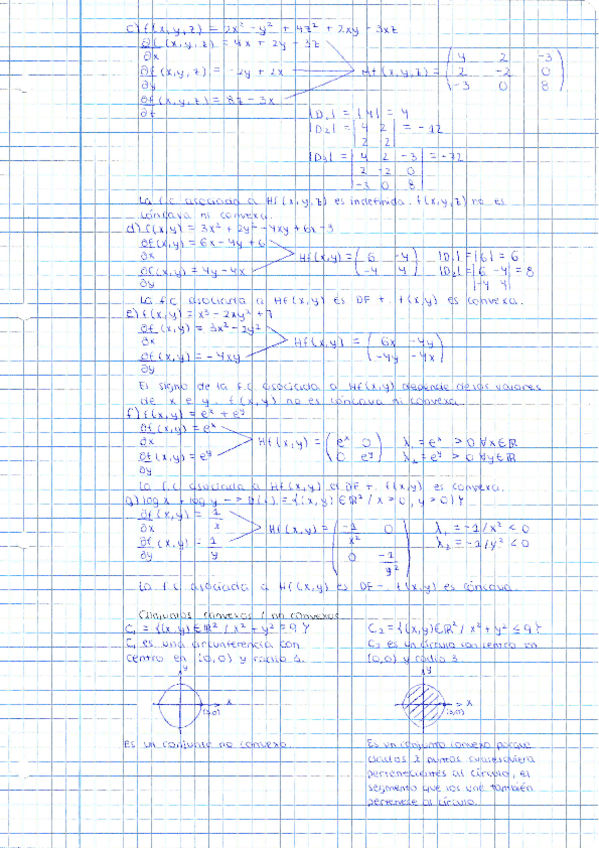 c) f(x,y,z) = 2x² - y² + 4z² + 2xy - 3xz
∂f/∂x (x,y,z) = 4x + 2y - 3z
∂f/∂y (x,y,z) = -2y + 2x
∂f/∂z (x,y,z) = 8z - 3x
Hf(x,y,z) = ( 4 2 -3
2 -2 0
-3 0 8 )
|D₁| = |4| = 4
|D₂| = | 4 2
2 2 | = -12
|D₃| = | 4 2 -3
2 -2 0
-3 0 8 | = -72
La f.c asociada a Hf(x,y,z) es indefinida. f(x,y,z) no es
cóncava ni convexa.
d) f(x,y) = 3x² + 2y² - 4xy + 6x - 3
∂f/∂x (x,y) = 6x - 4y + 6
∂f/∂y (x,y) = 4y - 4x
Hf(x,y) = ( 6 -4
-4 4 )
|D₁| = |6| = 6
|D₂| = | 6 -4
-4 4 | = 8
La f.c asociada a Hf(x,y) es DF+. f(x,y) es convexa.
e) f(x,y) = x³ - 2xy² + 7
∂f/∂x (x,y) = 3x² - 2y²
∂f/∂y (x,y) = -4xy
Hf(x,y) = ( 6x -4y
-4y -4x )
El signo de la f.c asociada a Hf(x,y) depende de los valores
de x e y. f(x,y) no es cóncava ni convexa.
f) f(x,y) = eˣ + eʸ
∂f/∂x (x,y) = eˣ
∂f/∂y (x,y) = eʸ
Hf(x,y) = ( eˣ 0
0 eʸ )
λ₁ = eˣ > 0 ∀x∈ℝ
λ₂ = eʸ > 0 ∀y∈ℝ
La f.c asociada a Hf(x,y) es DF+. f(x,y) es convexa.
g) log x + log y → D(f) = {(x,y)∈ℝ² / x > 0, y > 0}
∂f/∂x (x,y) = 1/x
∂f/∂y (x,y) = 1/y
Hf(x,y) = ( -1/x² 0
0 -1/y² )
λ₁ = -1/x² < 0
λ₂ = -1/y² < 0
La f.c asociada a Hf(x,y) es DF-. f(x,y) es cóncava.
Conjuntos convexos / no convexos
C₁ = {(x,y)∈ℝ² / x² + y² = 9}
C₁ es una circunferencia con
centro en (0,0) y radio 3.
y
x
(3,0)
Es un conjunto no convexo.
C₂ = {(x,y)∈ℝ² / x² + y² ≤ 9}
C₂ es un círculo con centro en
(0,0) y radio 3
y
x
(3,0)
Es un conjunto convexo porque
dados 2 puntos cualesquiera
pertenecientes al círculo, el
segmento que los une también
pertenece al círculo.